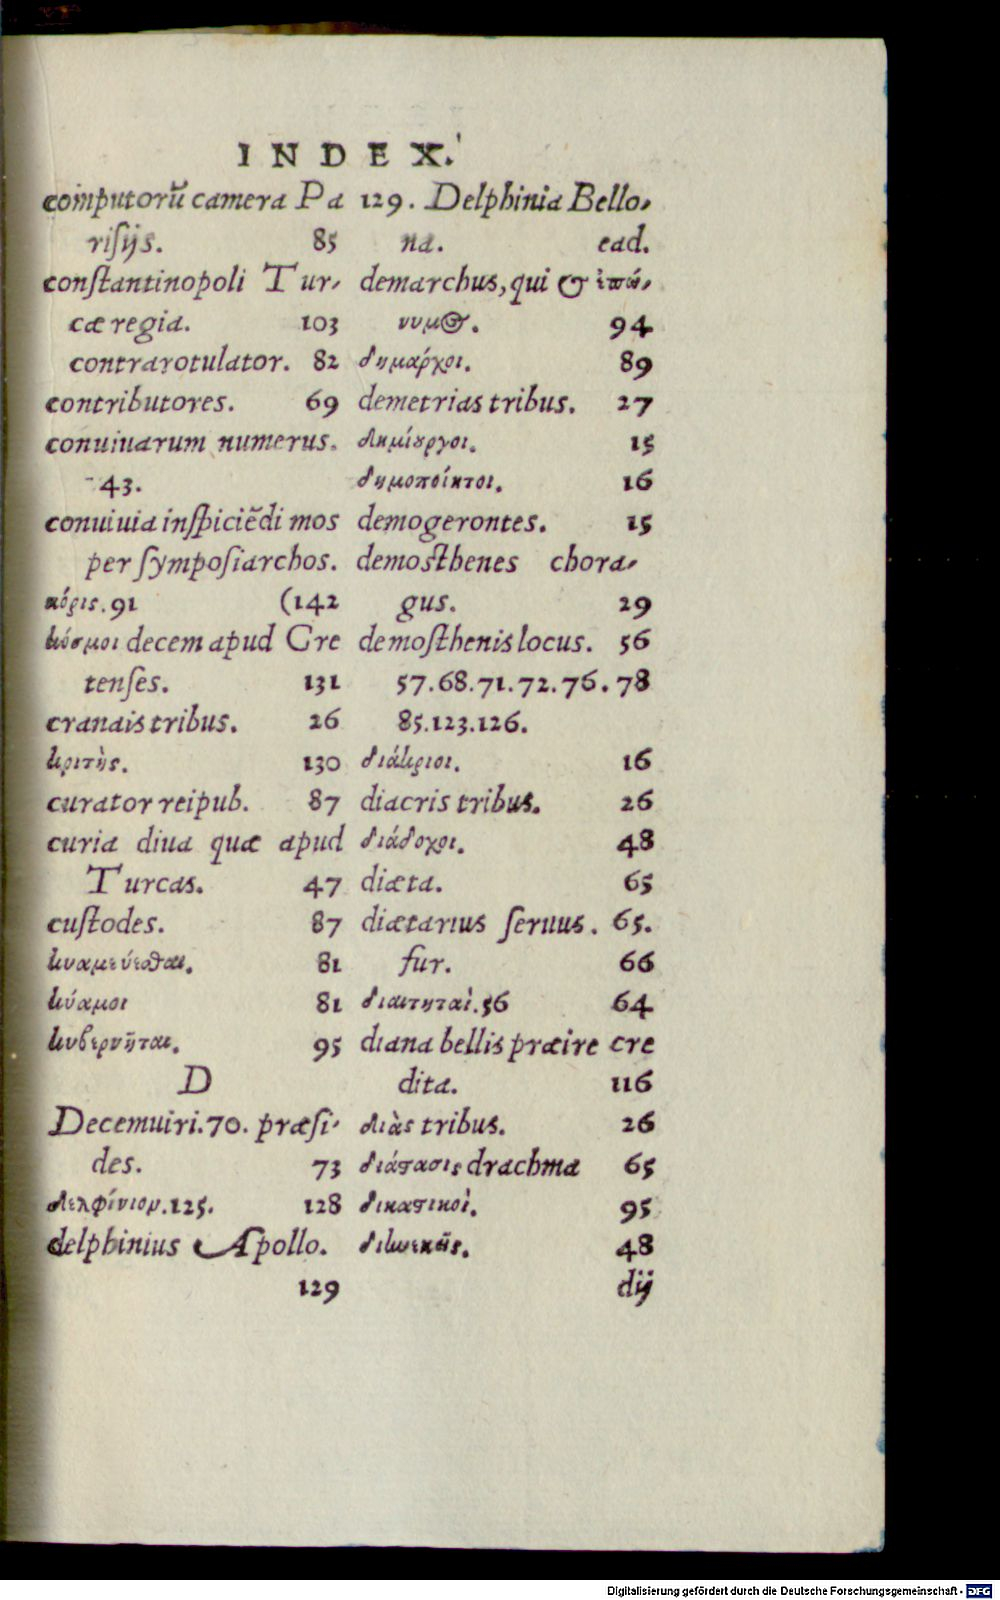 INDEX.
computorũ camera Pa
risijs. 85
constantinopoli Tur-
cæ regia. 103
contrarotulator. 82
contributores. 69
conuiuarum numerus.
43.
conuiuia inspiciẽdi mos
per symposiarchos.
κόρις. 91 (142
κόσμοι decem apud Cre
tenses. 131
cranais tribus. 26
κριτὴς. 130
curator reipub. 87
curia diua quæ apud
Turcas. 47
custodes. 87
κυαμεύεσθαι. 81
κύαμοι 81
κυβερνῆται. 95
D
Decemuiri. 70. præsi-
des. 73
δελφίνιον. 125. 128
delphinius Apollo.
129
129. Delphinia Bello-
na. ead.
demarchus, qui & ἐπώ-
νυμος. 94
δημαρχοι. 89
demetrias tribus. 27
δημίουργοι. 15
δημοποίητοι. 16
demogerontes. 15
demosthenes chora-
gus. 29
demosthenis locus. 56
57. 68. 71. 72. 76. 78
85. 123. 126.
διάκριοι. 16
diacris tribus. 26
διάδοχοι. 48
diæta. 65
diætarius seruus. 65.
fur. 66
διαιτηταὶ. 56 64
diana bellis præire cre
dita. 116
διὰς tribus. 26
διάστασις drachma 65
δικαστικοὶ. 95
διωκειῆς. 48
dij
Digitalisierung gefördert durch die Deutsche Forschungsgemeinschaft - DFG